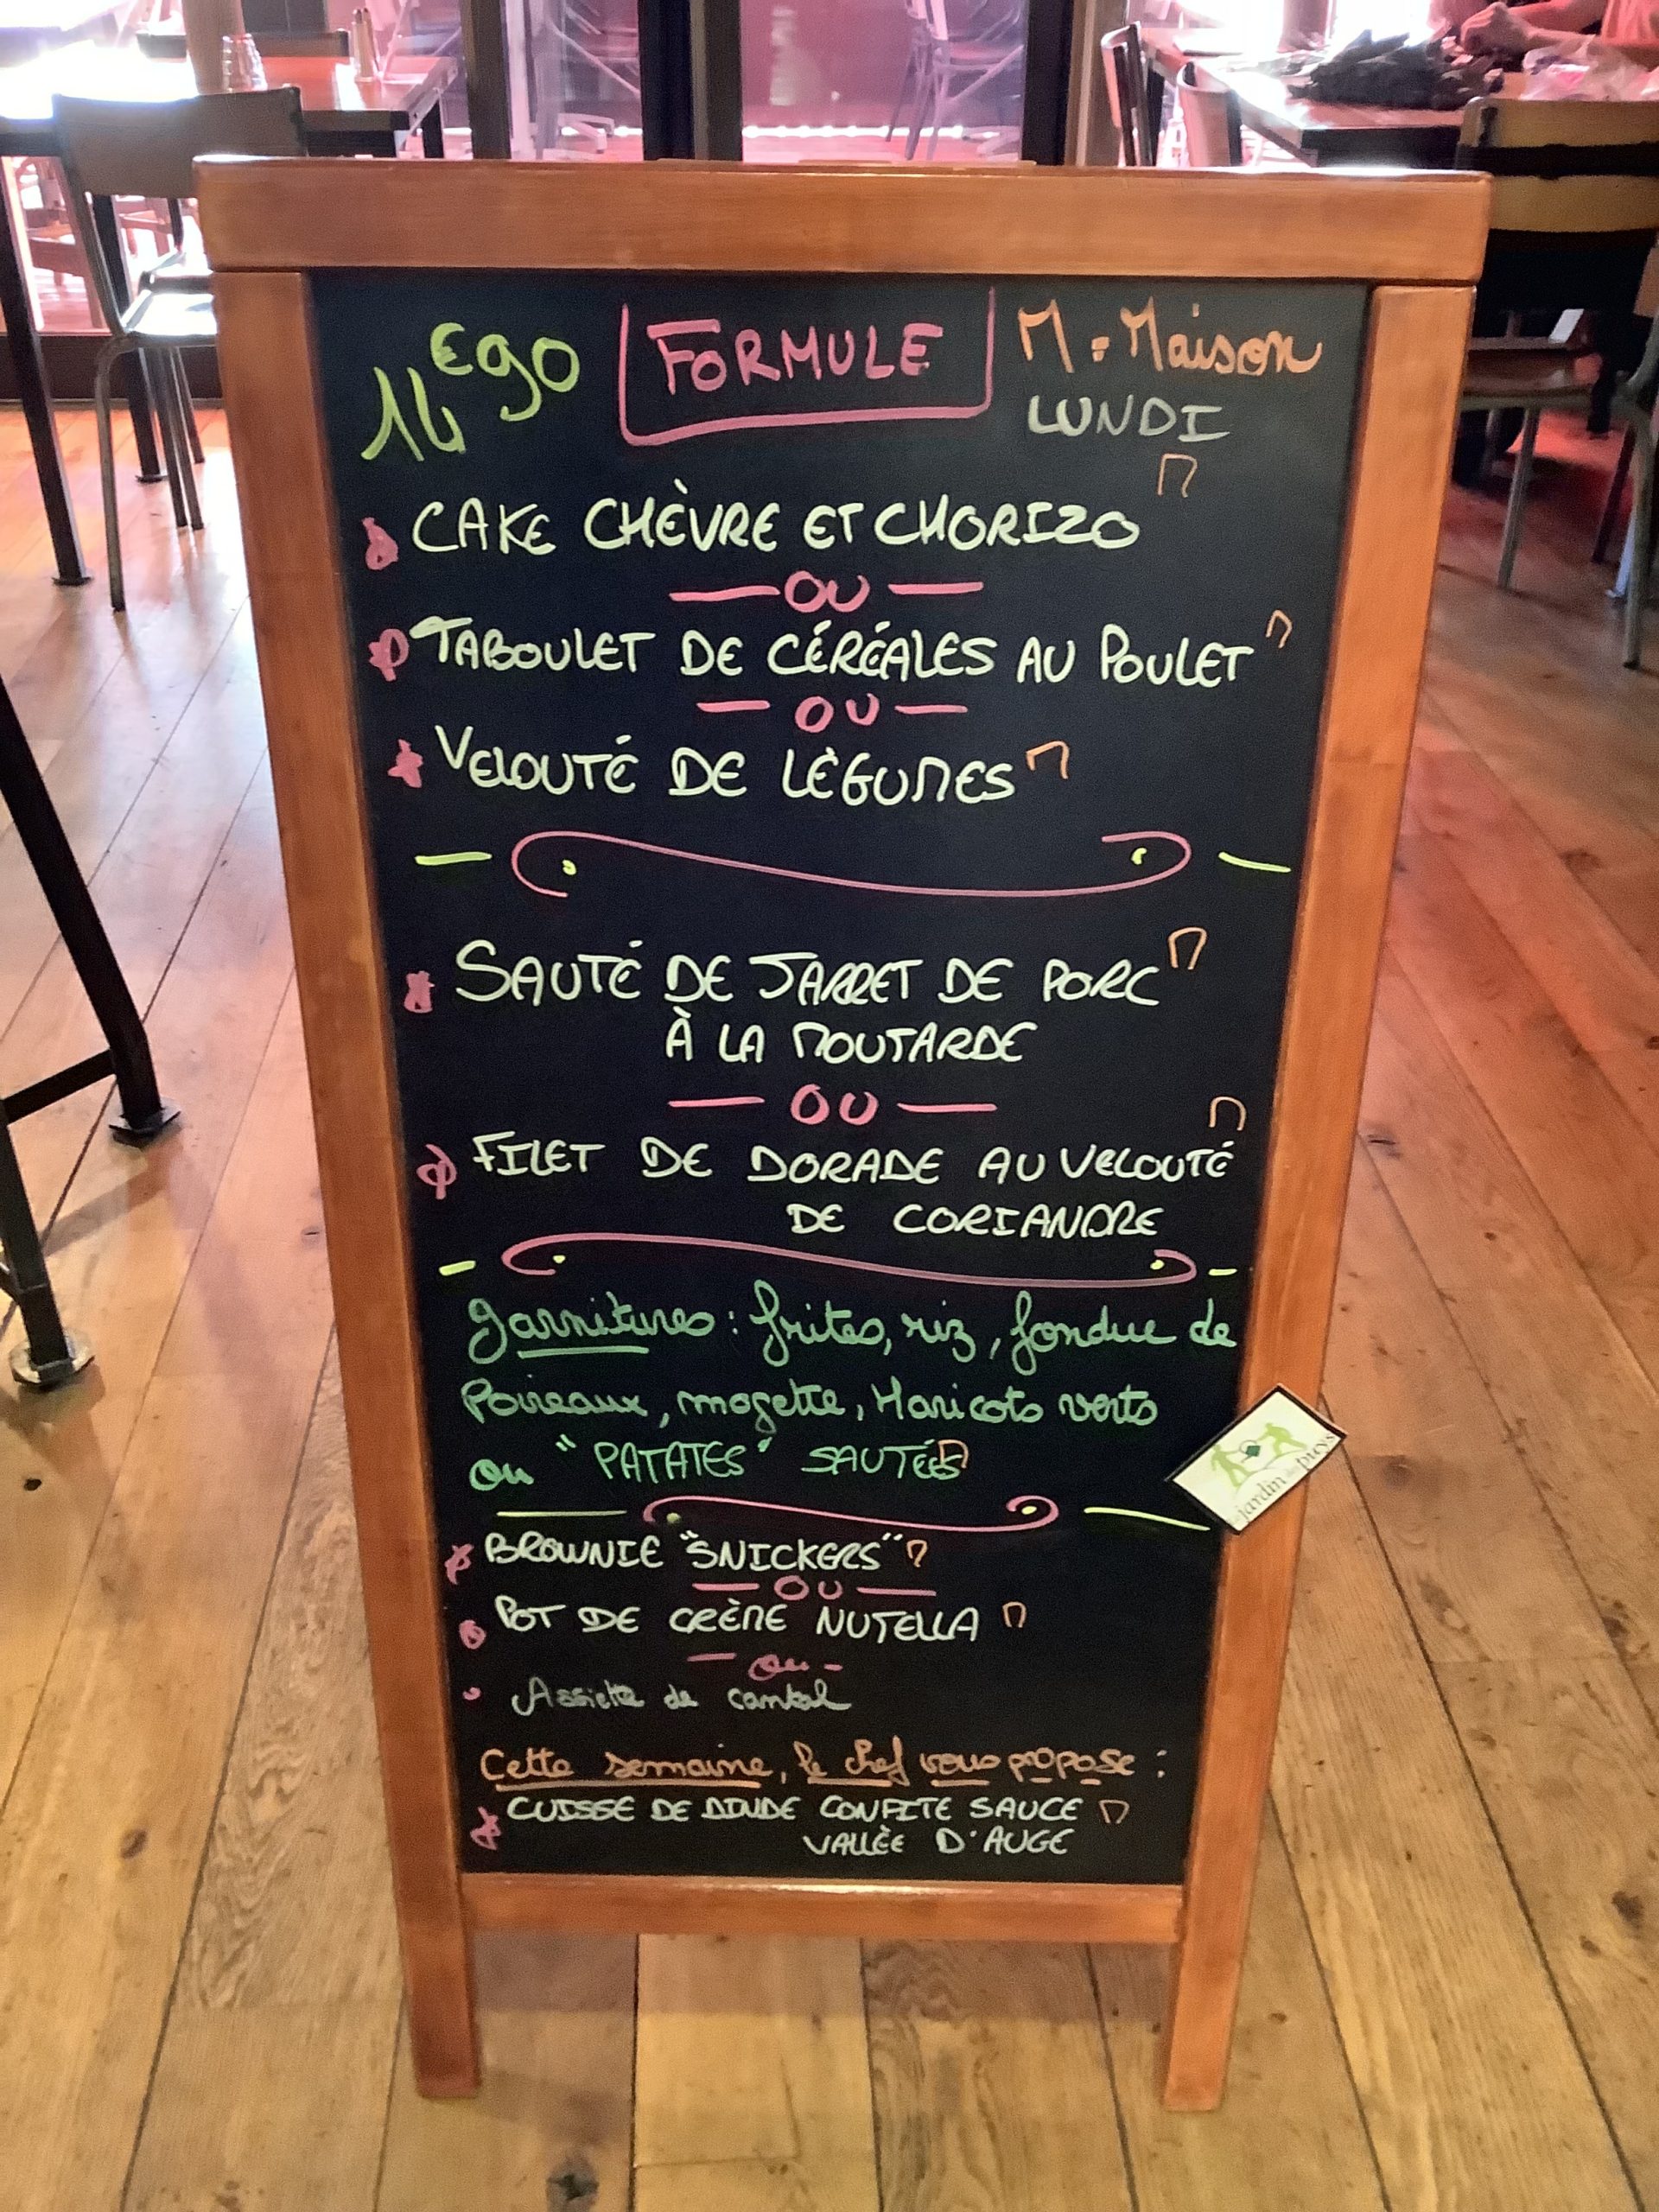 14€90 FORMULE M = Maison
LUNDI
CAKE CHÈVRE ET CHORIZO M
OU
TABOULET DE CÉRÉALES AU POULET M
OU
VELOUTÉ DE LÉGUMES M
SAUTÉ DE JARRET DE PORC M
À LA MOUTARDE
OU
FILET DE DORADE AU VELOUTÉ M
DE CORIANDRE
garnitures : frites, riz, fondue de
Poireaux, mogette, Haricots verts
ou "PATATES" SAUTÉES M
BROWNIE "SNICKERS" M
OU
POT DE CRÈME NUTELLA M
ou
Assiette de cantal
Cette semaine, le chef vous propose :
CUISSE DE DINDE CONFITE SAUCE M
VALLÉE D'AUGE
jardin des puys